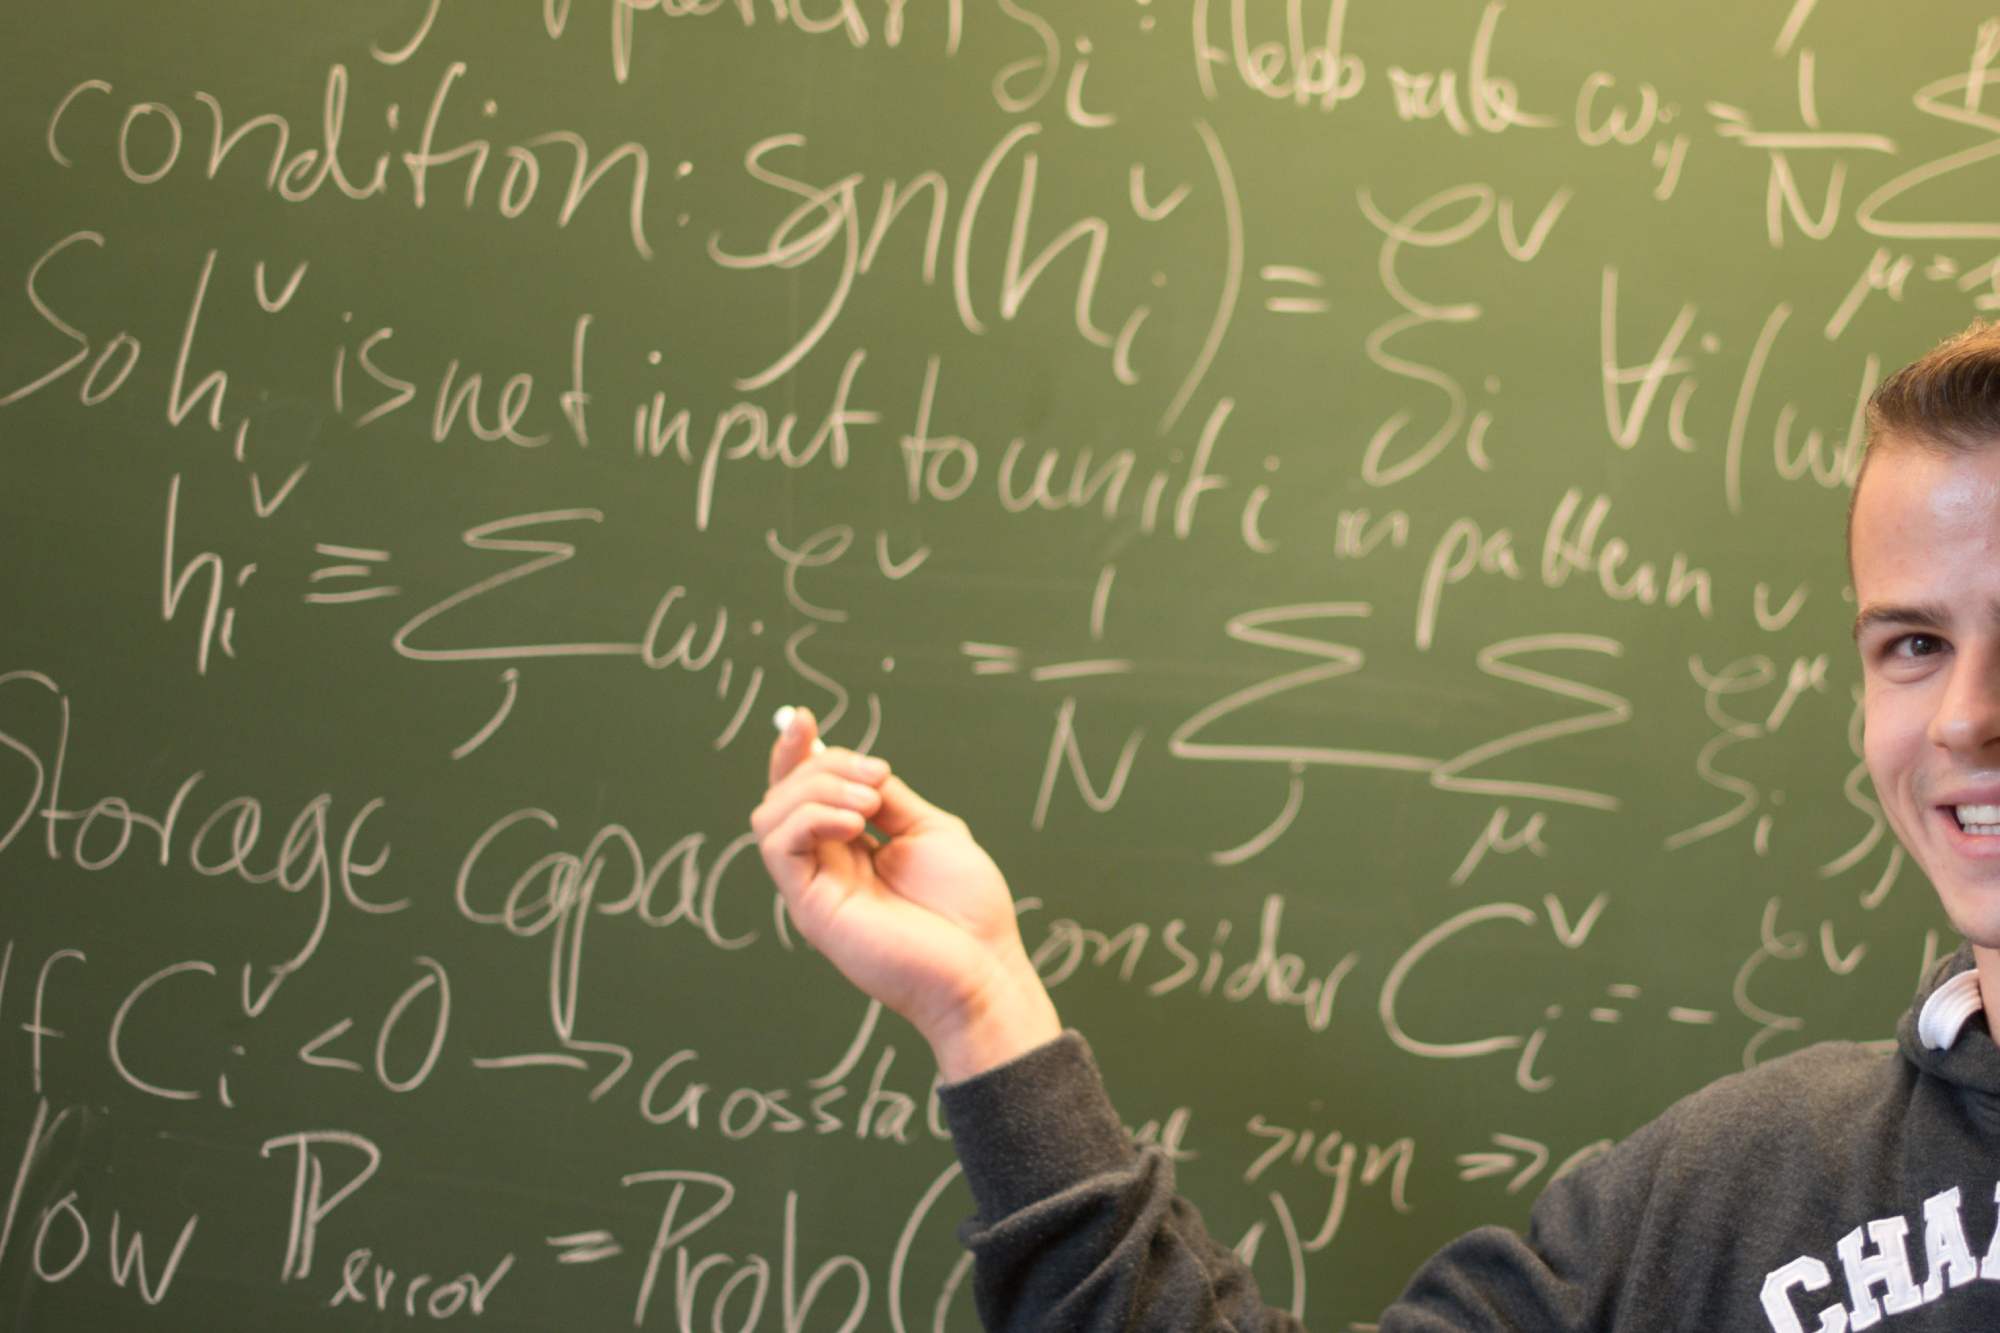 ξi : Hebb rule ωij = 1/N Σ μ=1
condition: Sgn(hi^ν) = ξi^ν ∀i (
So hi^ν is net input to unit i in pattern ν
hi^ν ≡ Σj ωij ξj^ν = 1/N Σj Σμ ξi^μ
Storage capac onsider Ci^ν = -ξ^ν
If Ci^ν < 0 → Crossta sign ⇒
Now ℙerror = Prob(
CHA